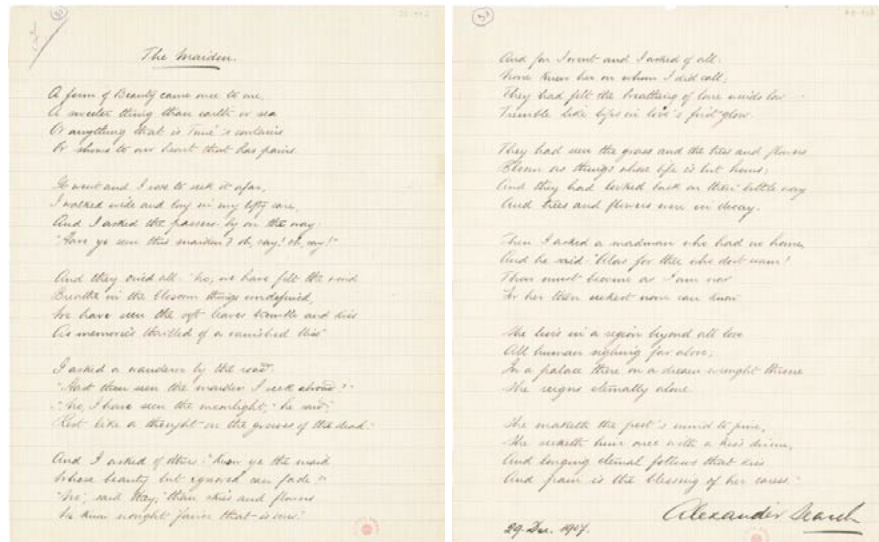 The Maiden.
A form of Beauty came once to me,
A sweeter thing than earth or sea
Or anything that is Time's contains
Or shows to our heart that has pains.
It went and I rose to seek it afar,
I walked wide and long in my lofty care,
And I asked the passers-by on the way:
"Have ye seen this maiden? oh, say! oh, say!"
And they cried all: "No; we have felt the wind
Breathe in the blossom things undefined,
We have seen the soft leaves tremble and kiss
As memories thrilled of a vanished bliss"
I asked a wanderer by the road:
"Hast thou seen the maiden I seek abroad?"
"No, I have seen the moonlight," he said,
"Rest like a thought on the graves of the dead."
And I asked of others: "Know ye the maid
Whose beauty but ignored can fade"
"No", said they, "than skies and flowers
We know nought fairer that is ours."
And far I went and I asked of all:
None knew her on whom I did call;
They had felt the breathing of love winds low
Tremble like lips in love's first glow.
They had seen the grass and the trees and flowers
Bloom as things whose life is but hours;
And they had looked back on their little way
And trees and flowers were in decay.
Then I asked a madman who had no home,
And he said: "Alas for thee who dost roam!
Thou must become as I am now
For her thou seekest none can know
She lives in a region beyond all love
All human sighing far above;
In a palace there on a dream-wrought throne
She reigns eternally alone.
She maketh the poet's mind to pine,
She seeketh him once with a kiss divine,
And longing eternal follows that kiss
And pain is the blessing of her caress."
Alexander Search
29. Dec. 1907.